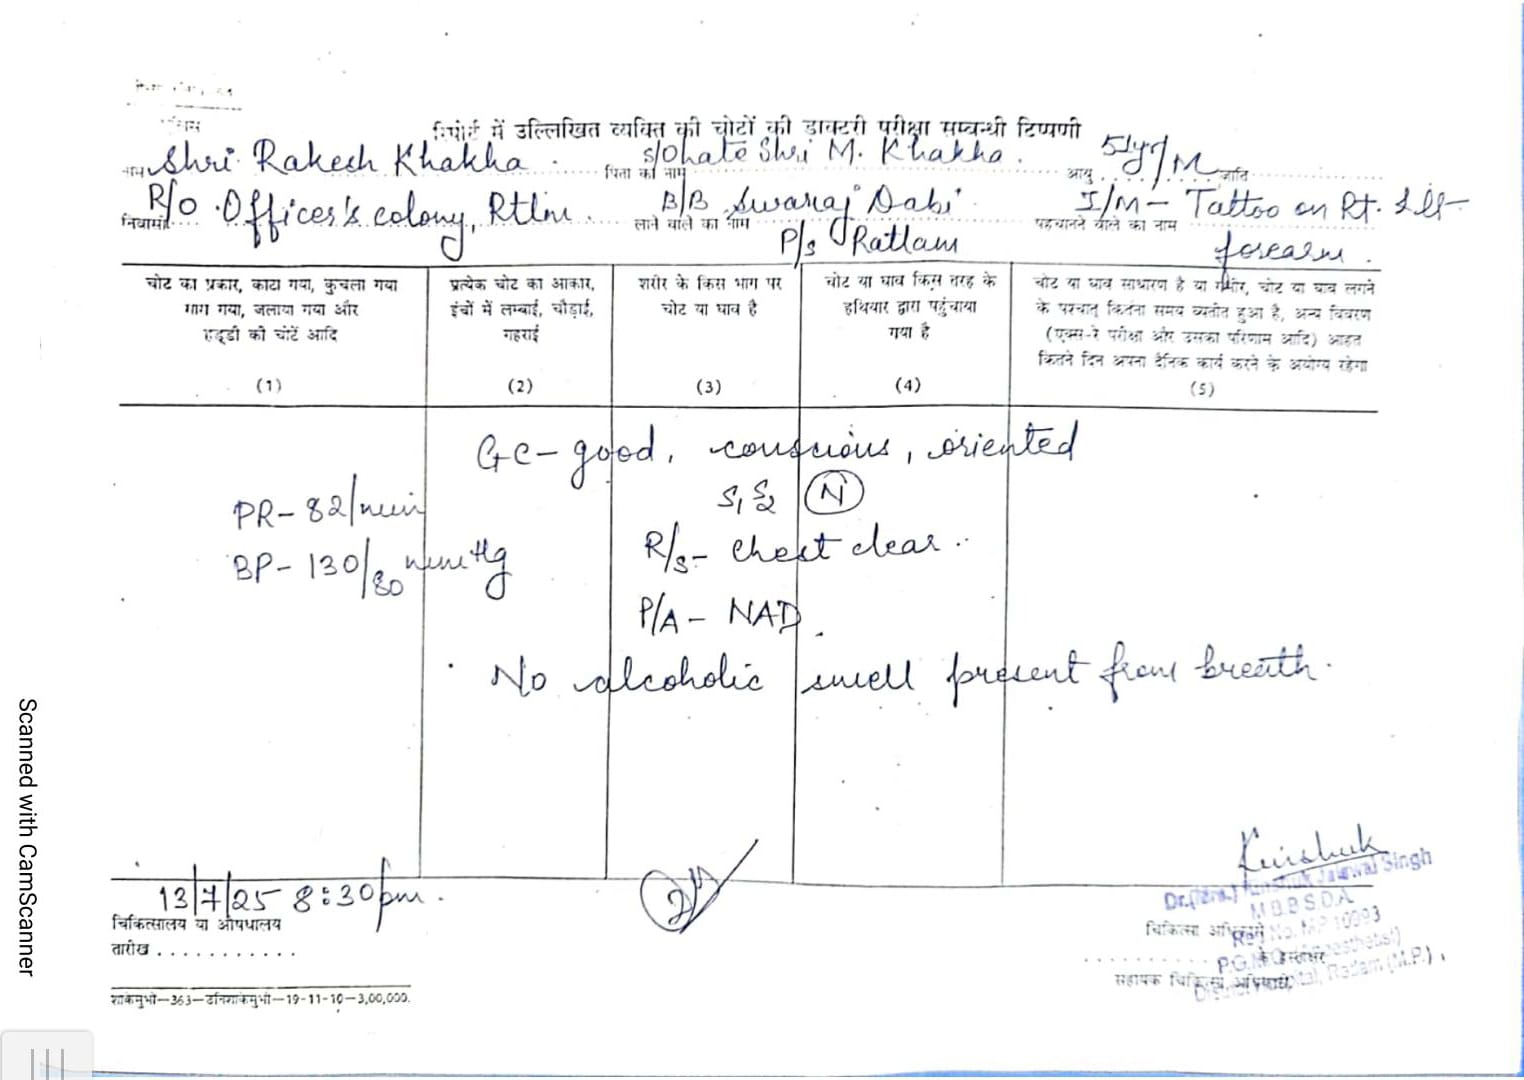 रिपोर्ट में उल्लिखित व्यक्ति की चोटों की डाक्टरी परीक्षा सम्बन्धी टिप्पणी
नाम Shri Rakesh Khakha. पिता का नाम S/O Late Shri M. Khakha. आयु 51yr/M जाति
निवासी R/o Officer's colony, Rtlm. लाने वाले का नाम B/B Swaraj Dabi पहचानने वाले का नाम I/M- Tattoo on Rt.
P/S Ratlam forearm.
चोट का प्रकार, काटा गया, कुचला गया भाग गया, जलाया गया और हड्डी की चोटें आदि
(1)
प्रत्येक चोट का आकार, इंचों में लम्बाई, चौड़ाई, गहराई
(2)
शरीर के किस भाग पर चोट या घाव है
(3)
चोट या घाव किस तरह के हथियार द्वारा पहुंचाया गया है
(4)
चोट या घाव साधारण है या गंभीर, चोट या घाव लगने के पश्चात् कितना समय व्यतीत हुआ है, अन्य विवरण (एक्स-रे परीक्षा और उसका परिणाम आदि) आहत कितने दिन अपना दैनिक कार्य करने के अयोग्य रहेगा
(5)
GC- good, conscious, oriented
PR- 82/min S1 S2 N
BP- 130/80 mmHg R/S- chest clear.
P/A- NAD.
No alcoholic smell present from breath.
13/7/25 8:30pm.
चिकित्सालय या औषधालय
तारीख
Kinshuk
Dr.(Mrs.) Kinshuk Jaiswal Singh
M.B.B.S D.A.
चिकित्सा अधिकारी
Reg No. MP 10093
के हस्ताक्षर
सहायक चिकित्सा अधिकारी
District Hospital, Ratlam (M.P.)
शाकेमुभो—363—उनिशाकेमुभो—19-11-10—3,00,000.
Scanned with CamScanner